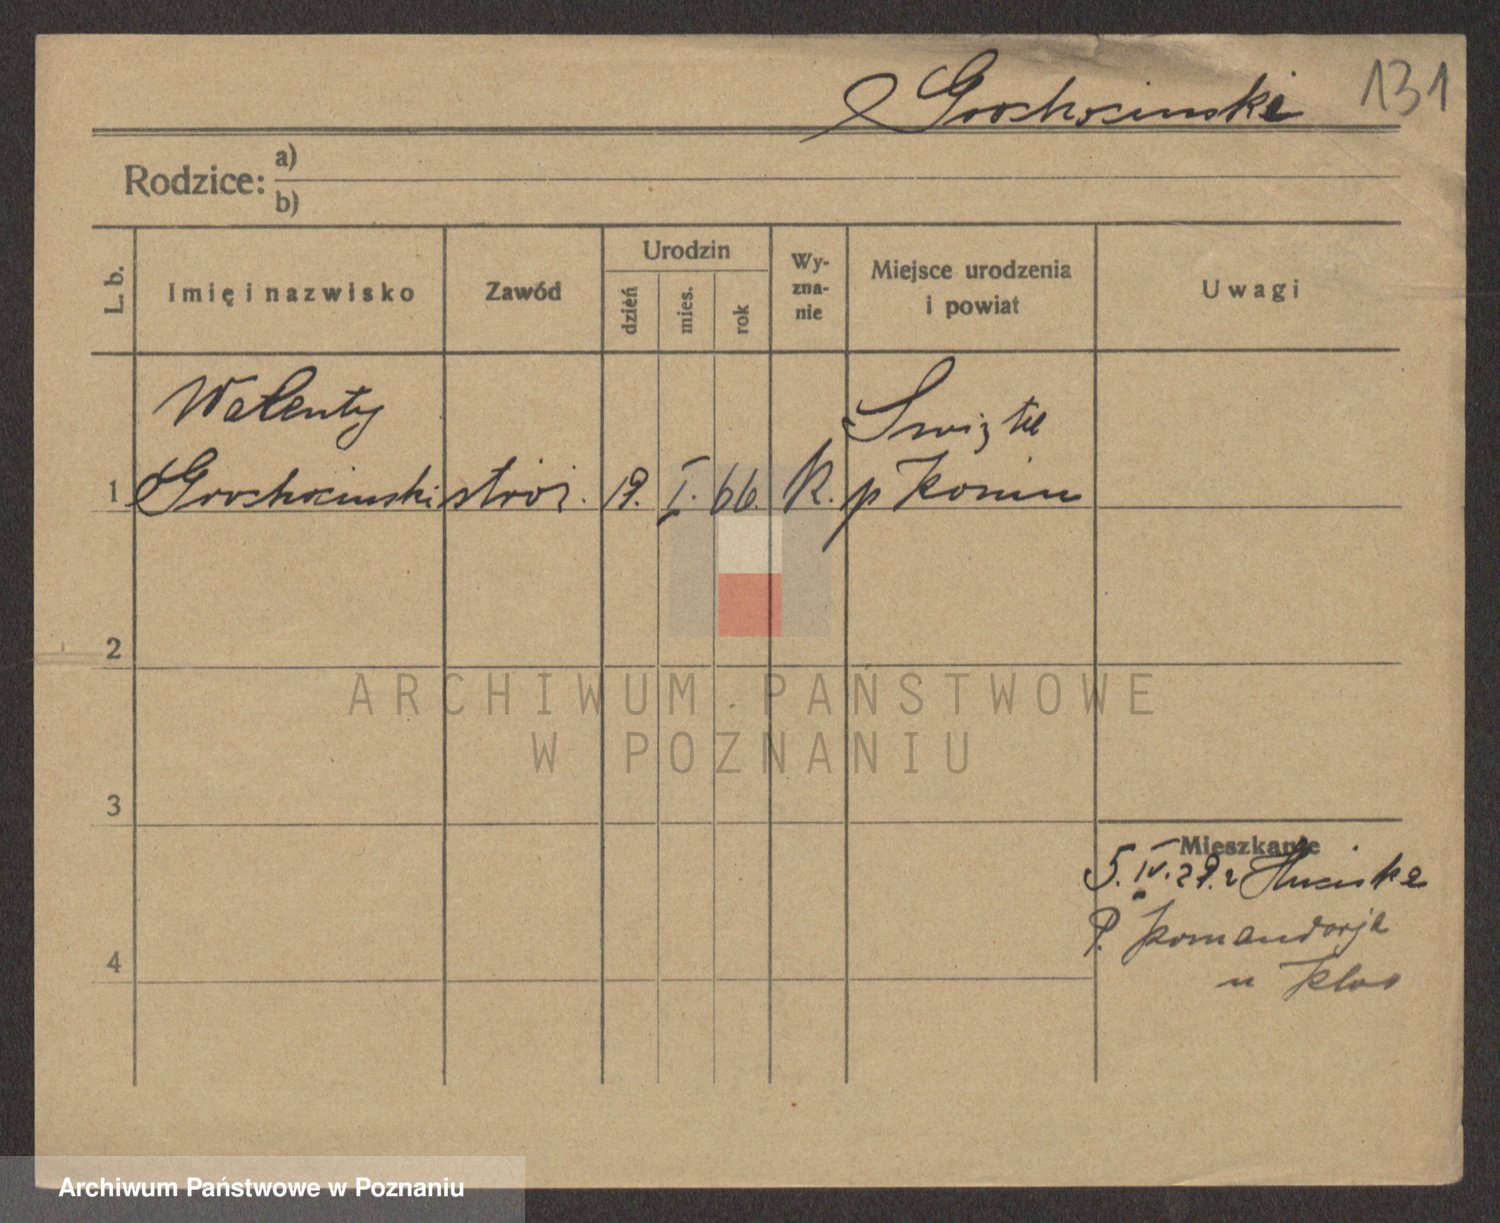 Grochocinski 131
Rodzice: a)
b)
L. b. Imię i nazwisko Zawód Urodzin dzień mies. rok Wy-zna-nie Miejsce urodzenia i powiat Uwagi
Walenty
1 Grochocinski stróż. 19. I. 66. K. p Konin
2
3
4
Mieszkanie
5. IV. 29. z
P. Komandorja
u Klos
ARCHIWUM PAŃSTWOWE
W POZNANIU
Archiwum Państwowe w Poznaniu